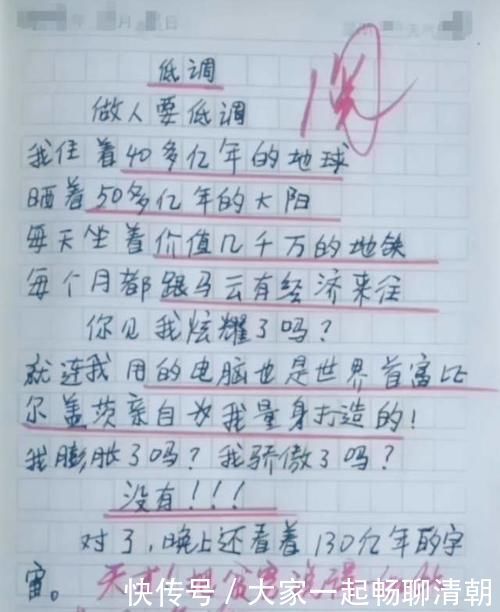 低调
做人要低调
我住着40多亿年的地球
晒着50多亿年的太阳
每天坐着价值几千万的地铁
每个月都跟马云有经济来往
你见我炫耀了吗？
就连我用的电脑也是世界首富比
尔盖茨亲自为我量身打造的！
我膨胀了吗？我骄傲了吗？
没有！！！
对了，晚上还看着130亿年的宇
宙。
快传号 / 大家一起畅聊清朝